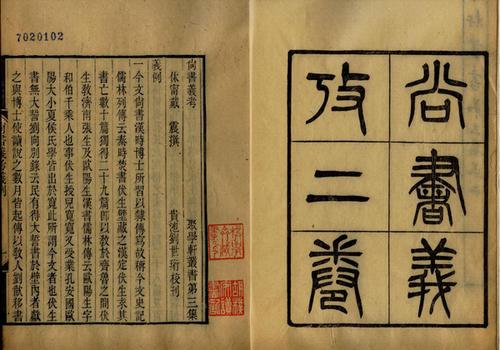 尚書義
攷二卷
尚書義考 聚學軒叢書第三集
休甯戴 震撰 貴池劉世珩校刊
義例
一今文尚書漢時博士所習以隸傳寫故稱今文史記
儒林列傳云秦時焚書伏生壁藏之漢定伏生求其
書亡數十篇獨得二十九篇卽以教於齊魯之間伏
生教濟南張生及歐陽生漢書儒林傳云歐陽生字
和伯千乘人也事伏生授兒寬寬又受業孔安國歐
陽大小夏侯氏學皆出於寬此所謂今文者也伏生
書無大誓劉向別錄云民有得大誓書於壁內者獻
之與博士使讀說之數月皆起傳以教人劉歆移書
7020102